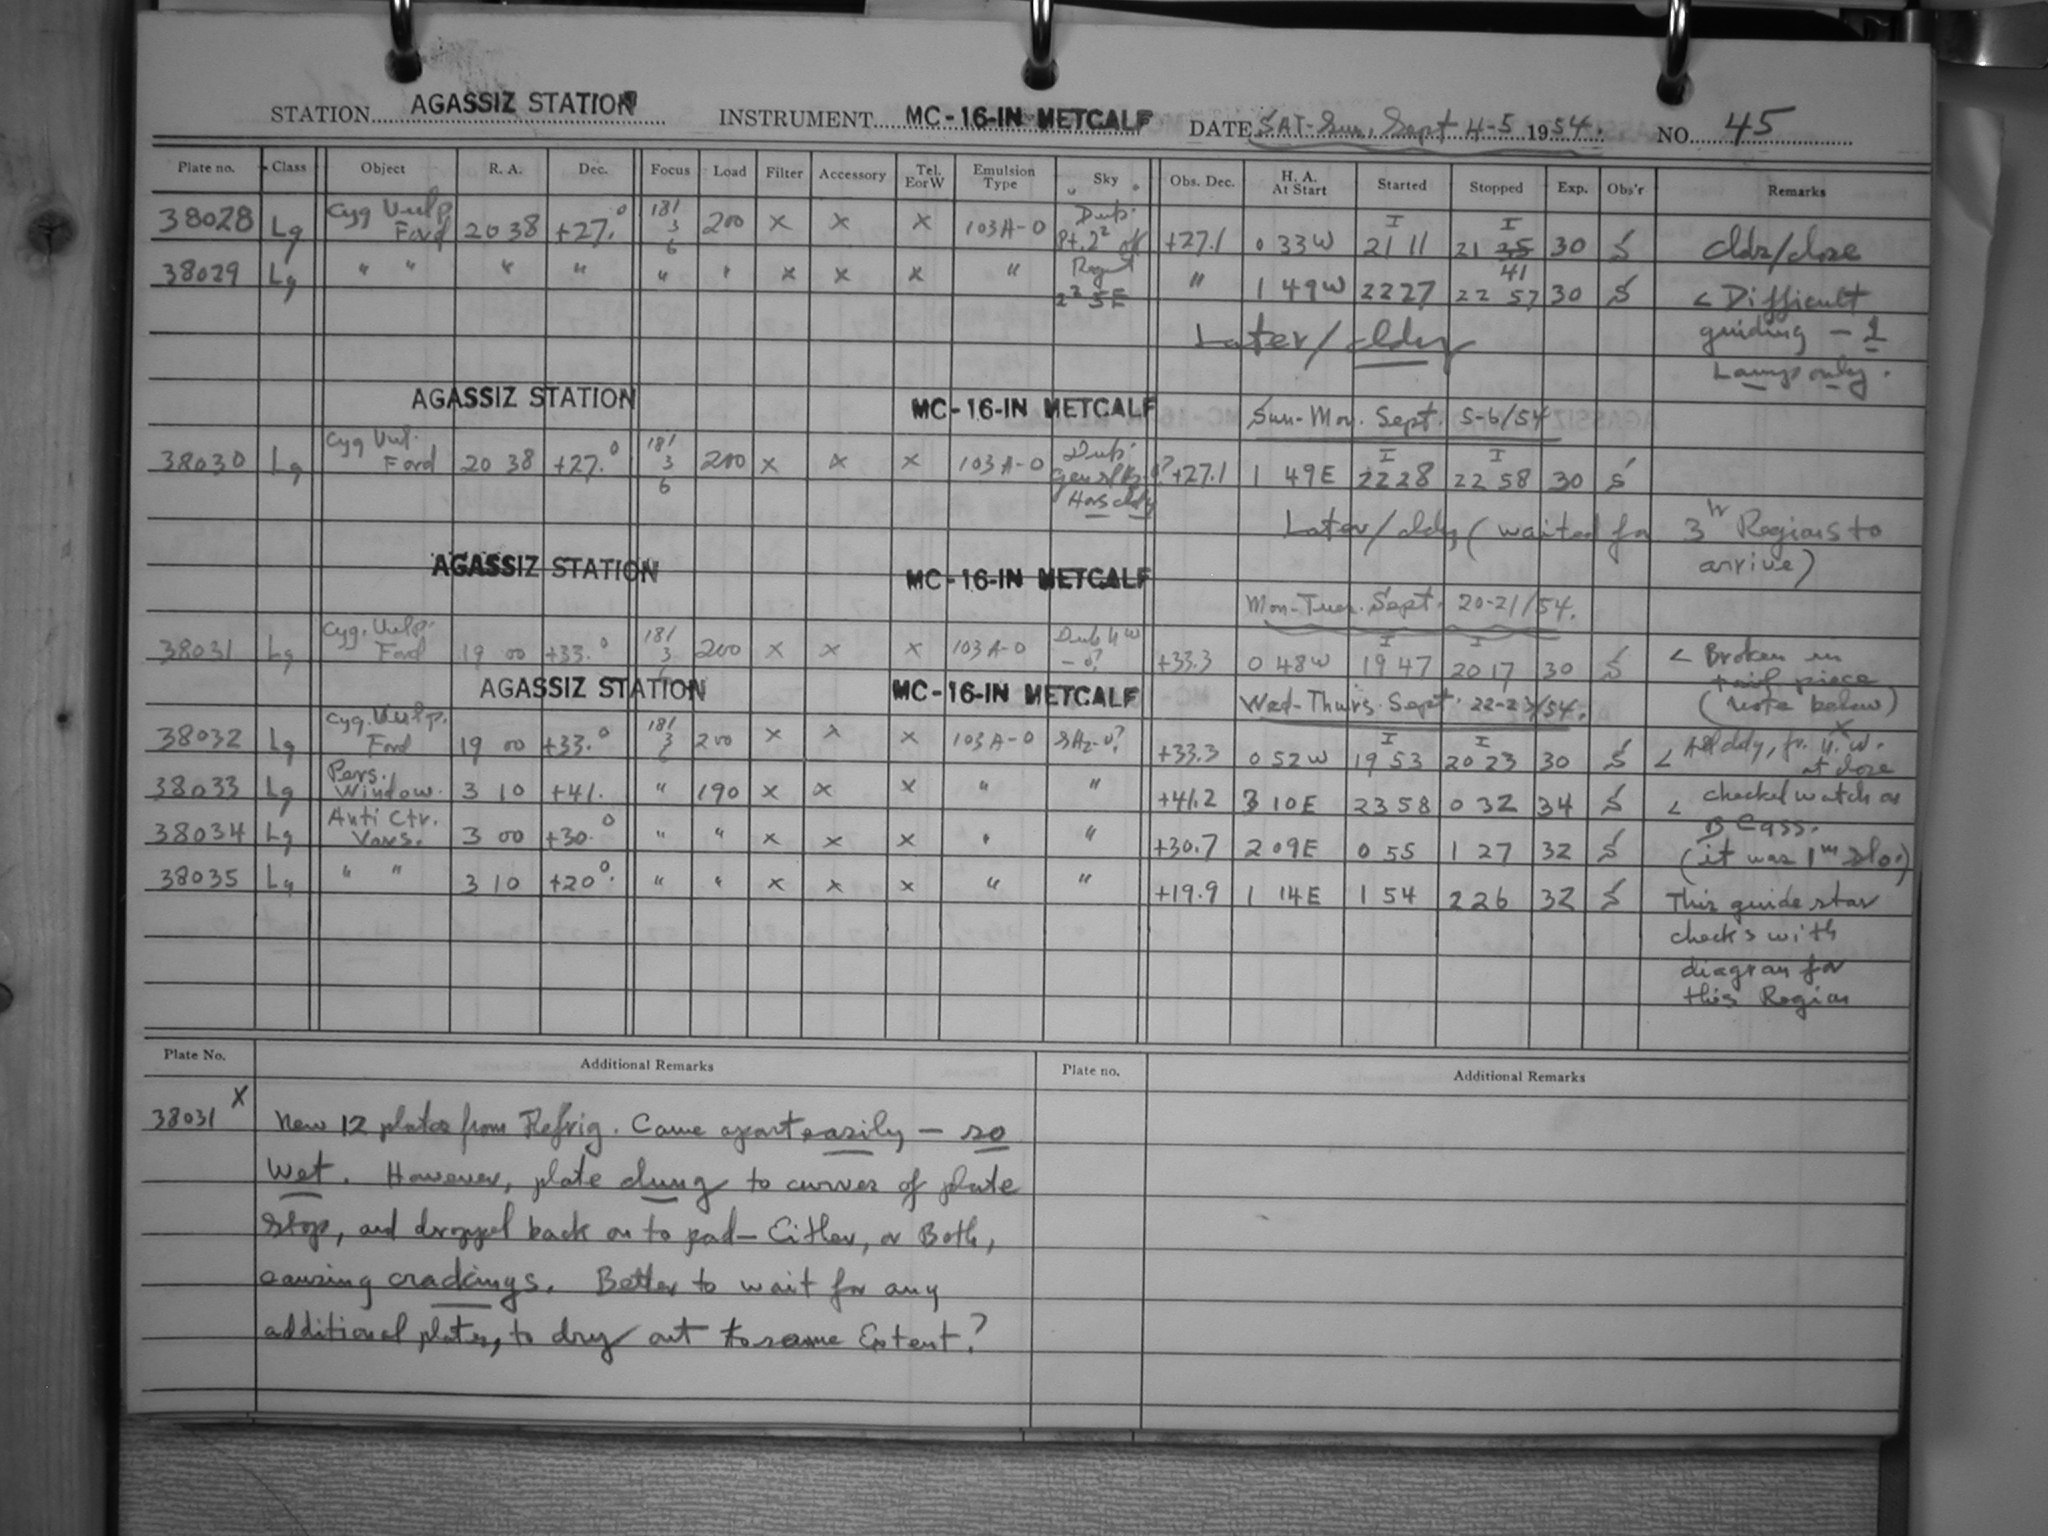 STATION AGASSIZ STATION INSTRUMENT MC-16-IN METCALF DATE SAT-Sun. Sept 4-5 1954. NO. 45
Plate no. Class Object R. A. Dec. Focus Load Filter Accessory Tel. E or W Emulsion Type Sky Obs. Dec. H. A. At Start Started Stopped Exp. Obs'r Remarks
38028 Lg Cyg Vulp. Ford 20 38 +27.° 181 3 6 200 x x x 103A-O +27.1 0 33W 21 11 21 35 41 30 S cldz/close
38029 Lg " " " " " " x x x " " 1 49W 22 27 22 57 30 S < Difficult
guiding - 1
Later/cldy
Lamp only.
AGASSIZ STATION MC-16-IN METCALF Sun-Mon. Sept. 5-6/54
38030 Lg Cyg Vul. Ford 20 38 +27.° 181 3 6 200 x x x 103A-O +27.1 1 49E 22 28 22 58 30 S
Later/cldy (waited for 3rd Regions to
arrive)
AGASSIZ STATION MC-16-IN METCALF
Mon-Tues. Sept. 20-21/54.
38031 Lg Cyg. Vulp. Ford 19 00 +33.° 181 3 6 200 x x x 103A-O +33.3 0 48W 19 47 20 17 30 S < Broken in
tail piece
AGASSIZ STATION MC-16-IN METCALF Wed-Thurs. Sept. 22-23/54.
(Note below) x
38032 Lg Cyg. Vulp. Ford 19 00 +33.° 181 3 6 200 x x x 103A-O +33.3 0 52W 19 53 20 23 30 S < cldy, fr. at close
38033 Lg Pers. Window. 3 10 +41. " 190 x x x " " +41.2 3 10E 23 58 0 32 34 S < checked watch on
B Cass.
38034 Lg Anti Ctr. Vars. 3 00 +30.° " " x x x " " +30.7 2 09E 0 55 1 27 32 S (it was 1m slo.)
38035 Lg " " 3 10 +20°. " " x x x " " +19.9 1 14E 1 54 2 26 32 S This guide star
checks with
diagram for
this Region
Plate No. Additional Remarks Plate no. Additional Remarks
38031 x New 12 plates from Refrig. Came apart easily - so
wet. However, plate clung to curves of plate
stop, and dropped back on to pad - Either, or Both,
causing crackings. Better to wait for any
additional plates, to dry out to some Extent?